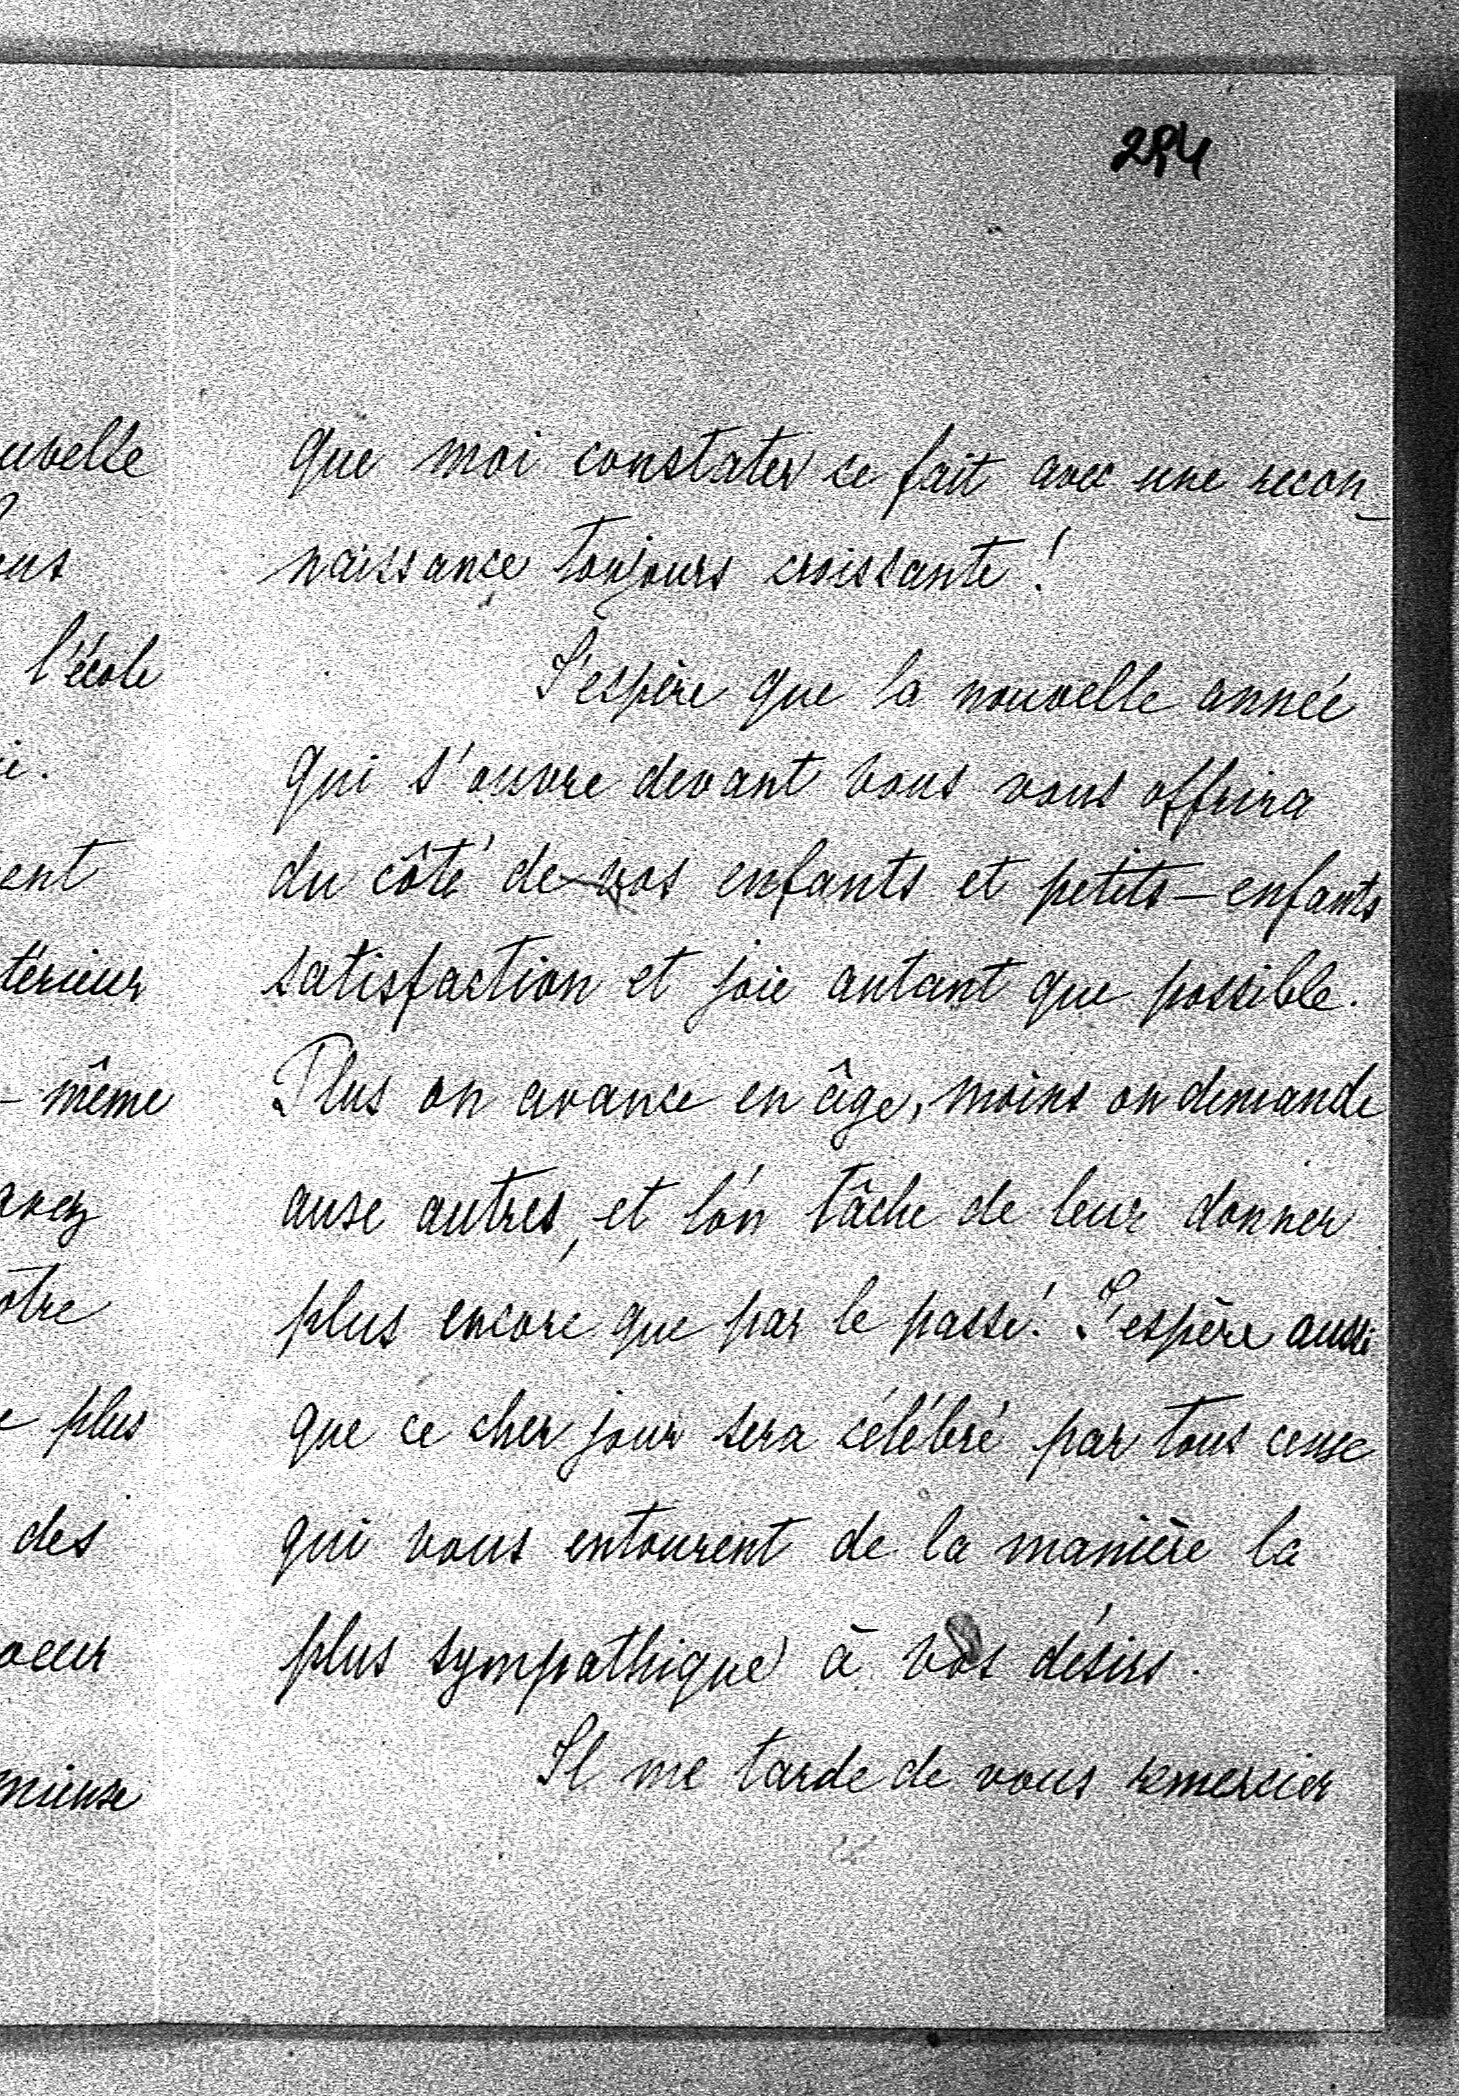 uvelle
l'école
ent
térieur
- même
avez
otre
plus
des
oeur
mieux
que moi constater ce fait avec une recon-
naissance toujours croissante!
J'espère que la nouvelle année
qui s'ouvre devant vous vous offrira
du côté de vos enfants et petits-enfants
satisfaction et joie autant que possible.
Plus on avance en âge, moins on demande
aux autres, et l'on tâche de leur donner
plus encore que par le passé! J'espère aussi
que ce cher jour sera célébré par tous ceux
qui vous entourent de la manière la
plus sympathique à vos désirs.
Il me tarde de vous remercier